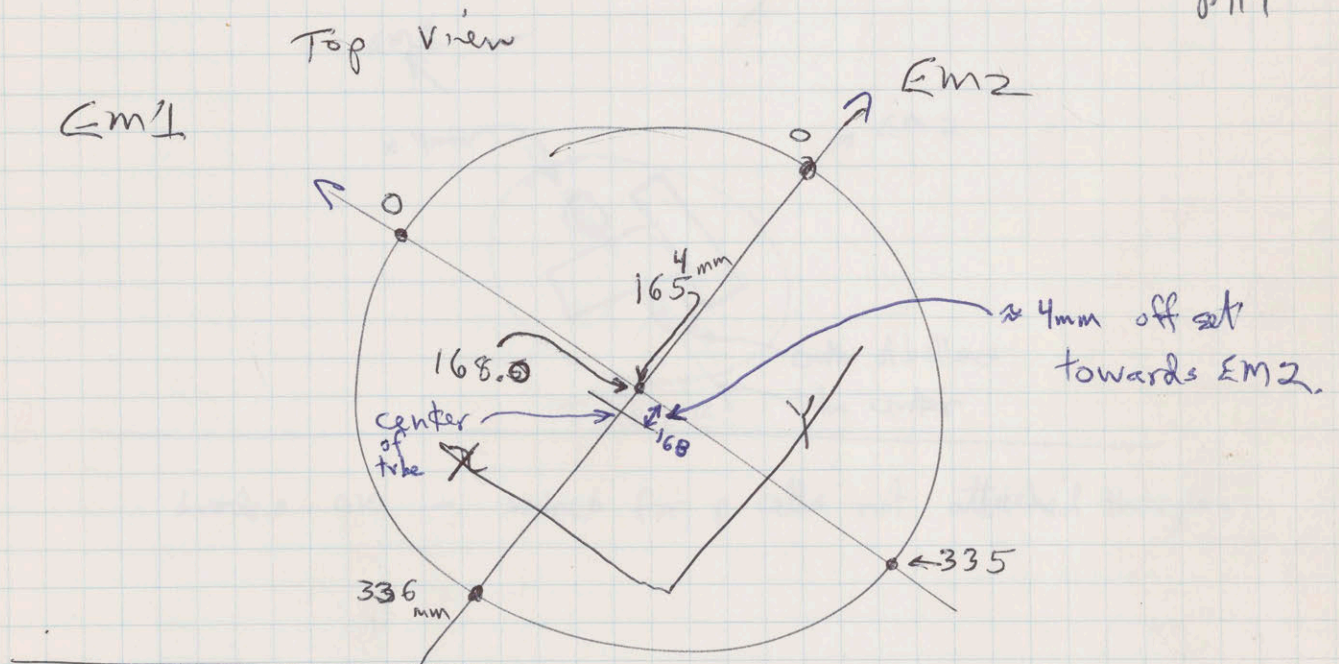 Top View
EM2
EM1
0
0
165 4 mm
168.0
≈ 4mm off set
towards EM2.
center
of
tube
168
X
Y
336 mm
←335